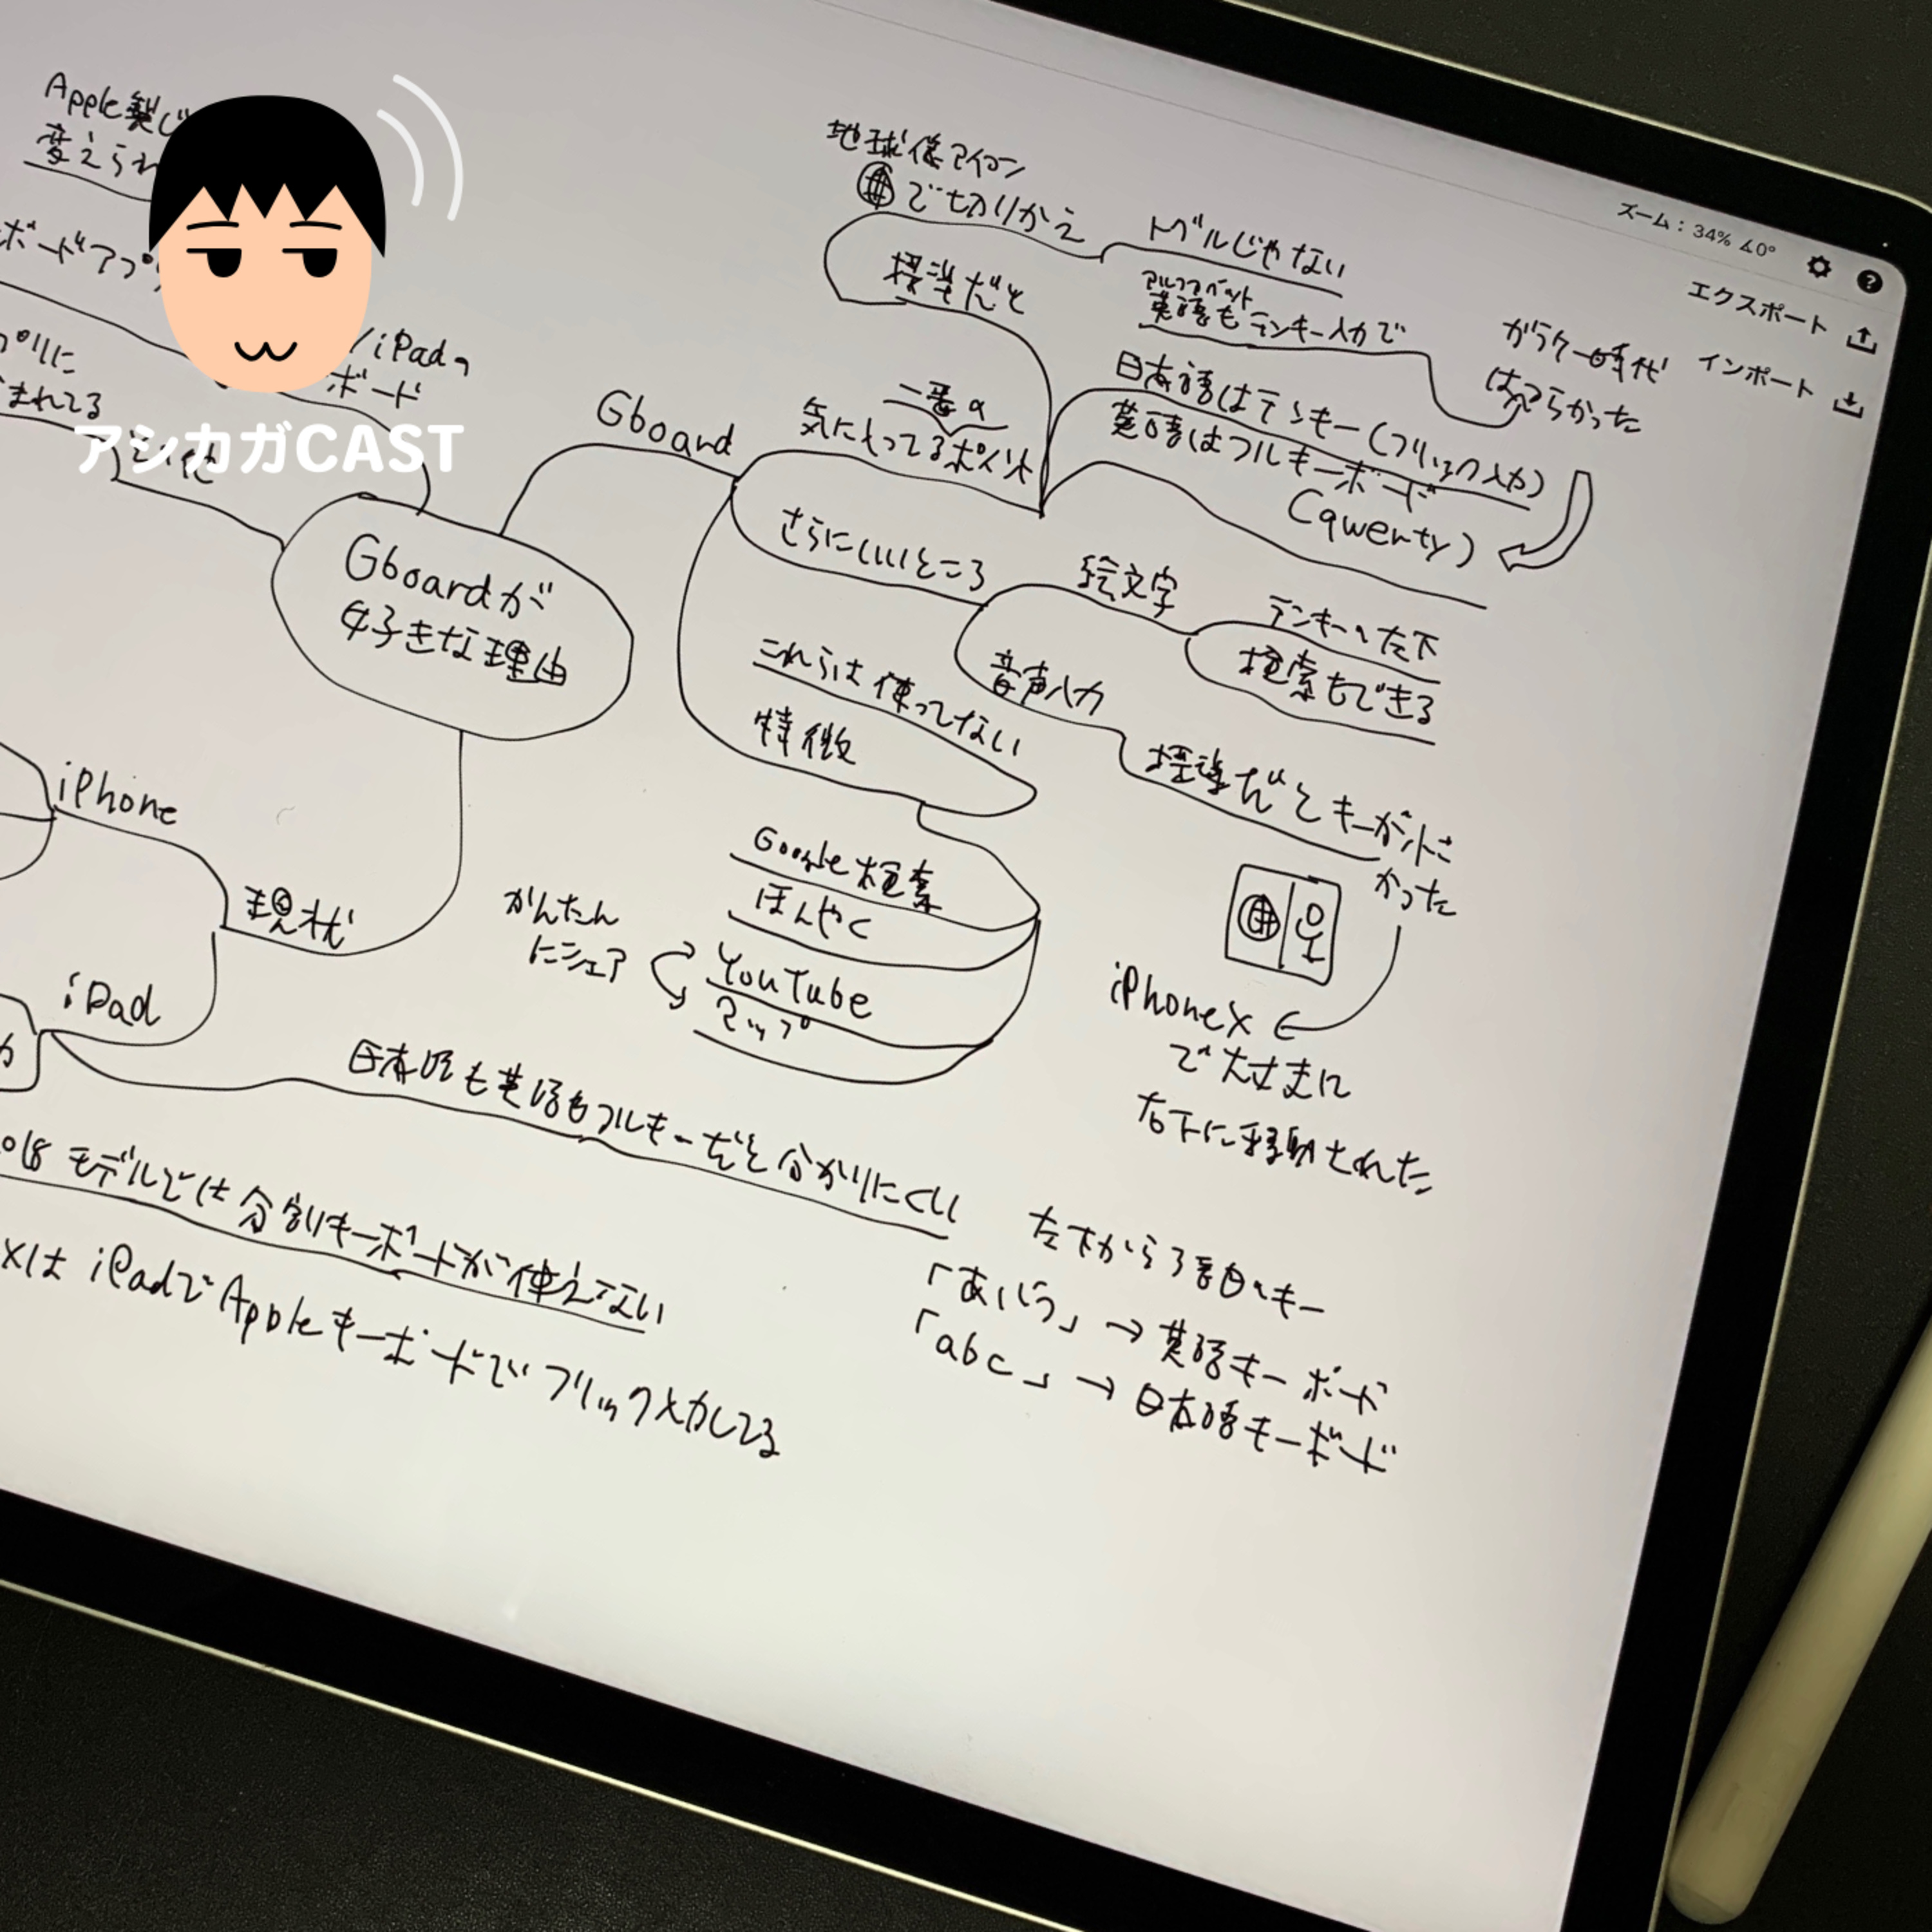 Apple製じ
変えられ
ボードアプリ
プリに
まれてる
/iPadの
ボード
アシカガCAST
Gboardが
好きな理由
Gboard
一番の
気に入ってるポイント
地球儀アイコン
で切りかえ
トグルじゃない
標準だと
アルファベット
英語もテンキー入力で
ガラケー時代
はつらかった
日本語はテンキー(フリック入力)
英語はフルキーボード
(qwerty)
さらにいいところ
絵文字
テンキーの左下
検索もできる
音声入力
標準だとキーが小さ
かった
iPhoneX
で大丈夫に
右下に移動された
これらは使ってない
特徴
Google検索
ほんやく
YouTube
マップ
かんたん
にシェア
現状
iPhone
iPad
力
日本語も英語もフルキーだと分かりにくい
左下から3番目のキー
「あいう」→英語キーボード
「abc」→日本語キーボード
018モデルでは分割キーボードが使えない
XはiPadでAppleキーボードでフリック入力してる
ズーム:34% ∡0°
エクスポート
インポート